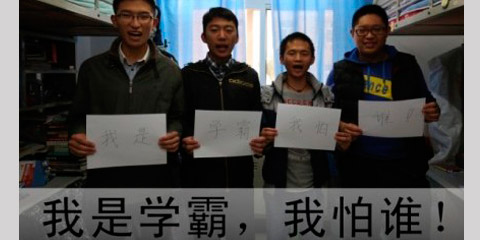 我是 学霸 我怕 谁?
我是学霸，我怕谁！